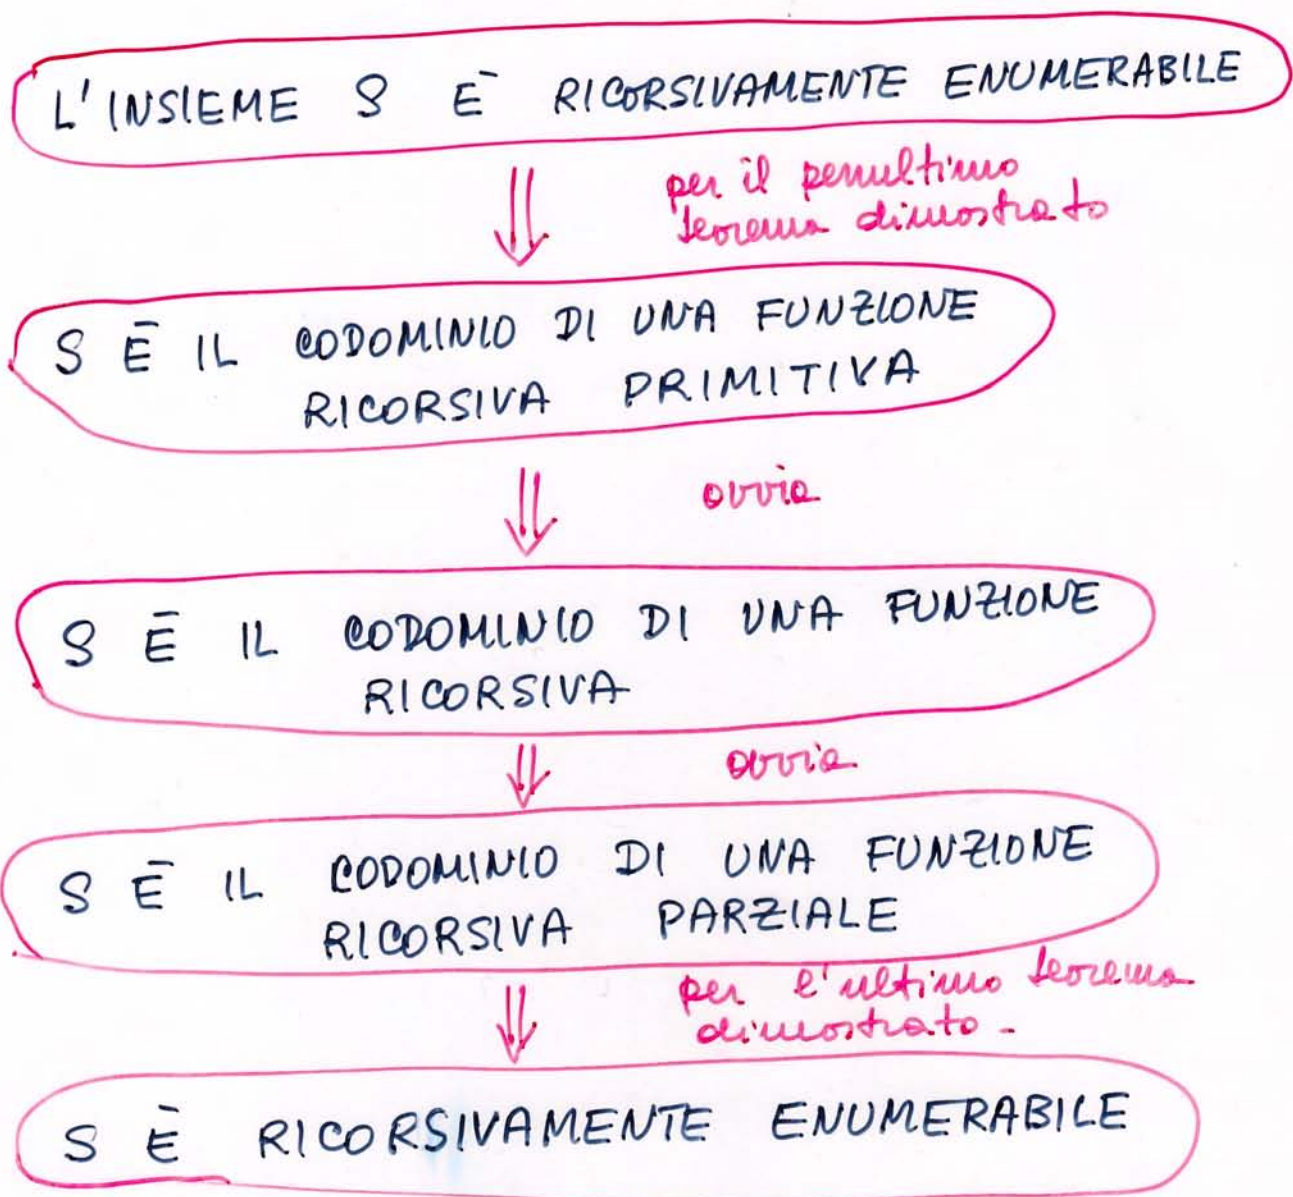 L'INSIEME S Ē RICORSIVAMENTE ENUMERABILE
per il penultimo
teorema dimostrato
S Ē IL CODOMINIO DI UNA FUNZIONE
RICORSIVA PRIMITIVA
ovvia
S Ē IL CODOMINIO DI UNA FUNZIONE
RICORSIVA
ovvia
S Ē IL CODOMINIO DI UNA FUNZIONE
RICORSIVA PARZIALE
per l'ultimo teorema
dimostrato -
S Ē RICORSIVAMENTE ENUMERABILE